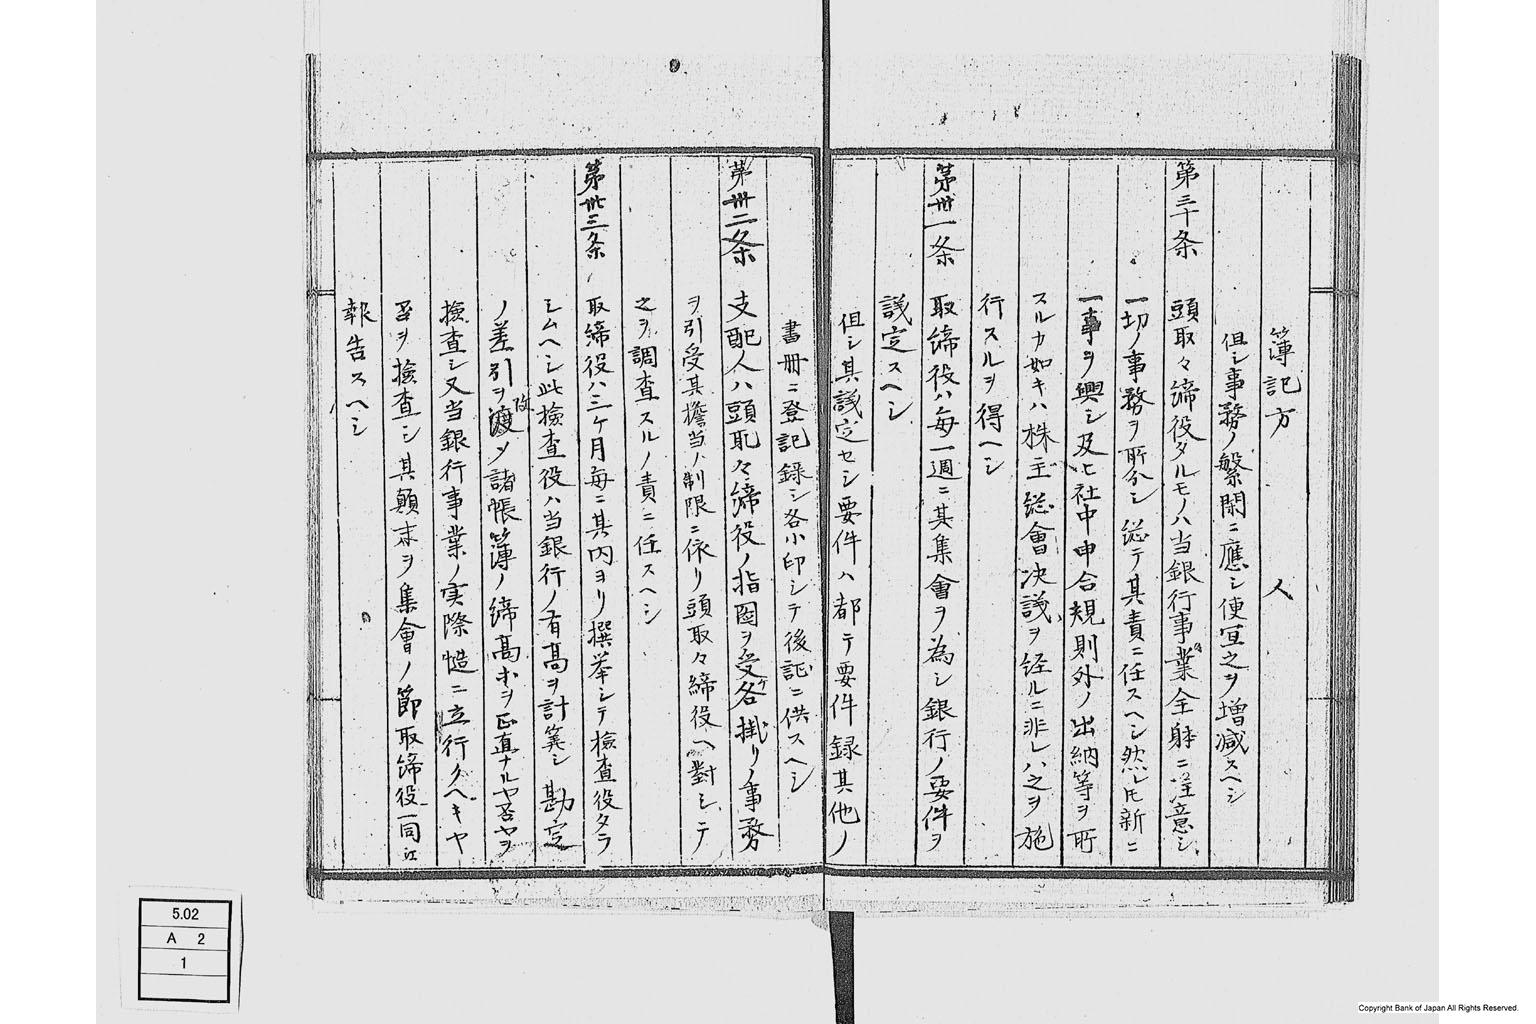 簿記方　　　　人
但シ事務ノ繁閑ニ應シ便宜之ヲ増减スヘシ
第三十条　頭取々締役タルモノハ当銀行事業全躰ニ注意シ
一切ノ事務ヲ所分シ総テ其責ニ任スヘシ然レ𪜈新ニ
一事ヲ興シ及ヒ社中申合規則外ノ出納等ヲ所
スルカ如キハ株主総會决議ヲ経ルニ非レハ之ヲ施
行スルヲ得ヘシ
第卅一条　取締役ハ毎一週ニ其集會ヲ為シ銀行ノ要件ヲ
議定スヘシ
但シ其議定セシ要件ハ都テ要件録其他ノ
書冊ニ登記録シ各小印シテ後証ニ供スヘシ
第卅二条　支配人ハ頭取々締役ノ指図ヲ受ケ各掛リノ事務
ヲ引受其擔当ノ制限ニ依リ頭取々締役ヘ對シテ
之ヲ調査スルノ責ニ任スヘシ
第卅三条　取締役ハ三ケ月毎ニ其内ヨリ撰挙シテ撿査役タラ
シムヘシ此撿査役ハ当銀行ノ有高ヲ計算シ勘定
ノ差引ヲ改メ諸帳簿ノ締高等ヲ正直ナルヤ否ヤヲ
撿査シ又当銀行事業ノ実際慥ニ立行クヘキヤ
否ヲ撿査シ其顛末ヲ集會ノ節取締役一同江
報告スヘシ
5.02
A 2
1
Copyright Bank of Japan All Rights Reserved.